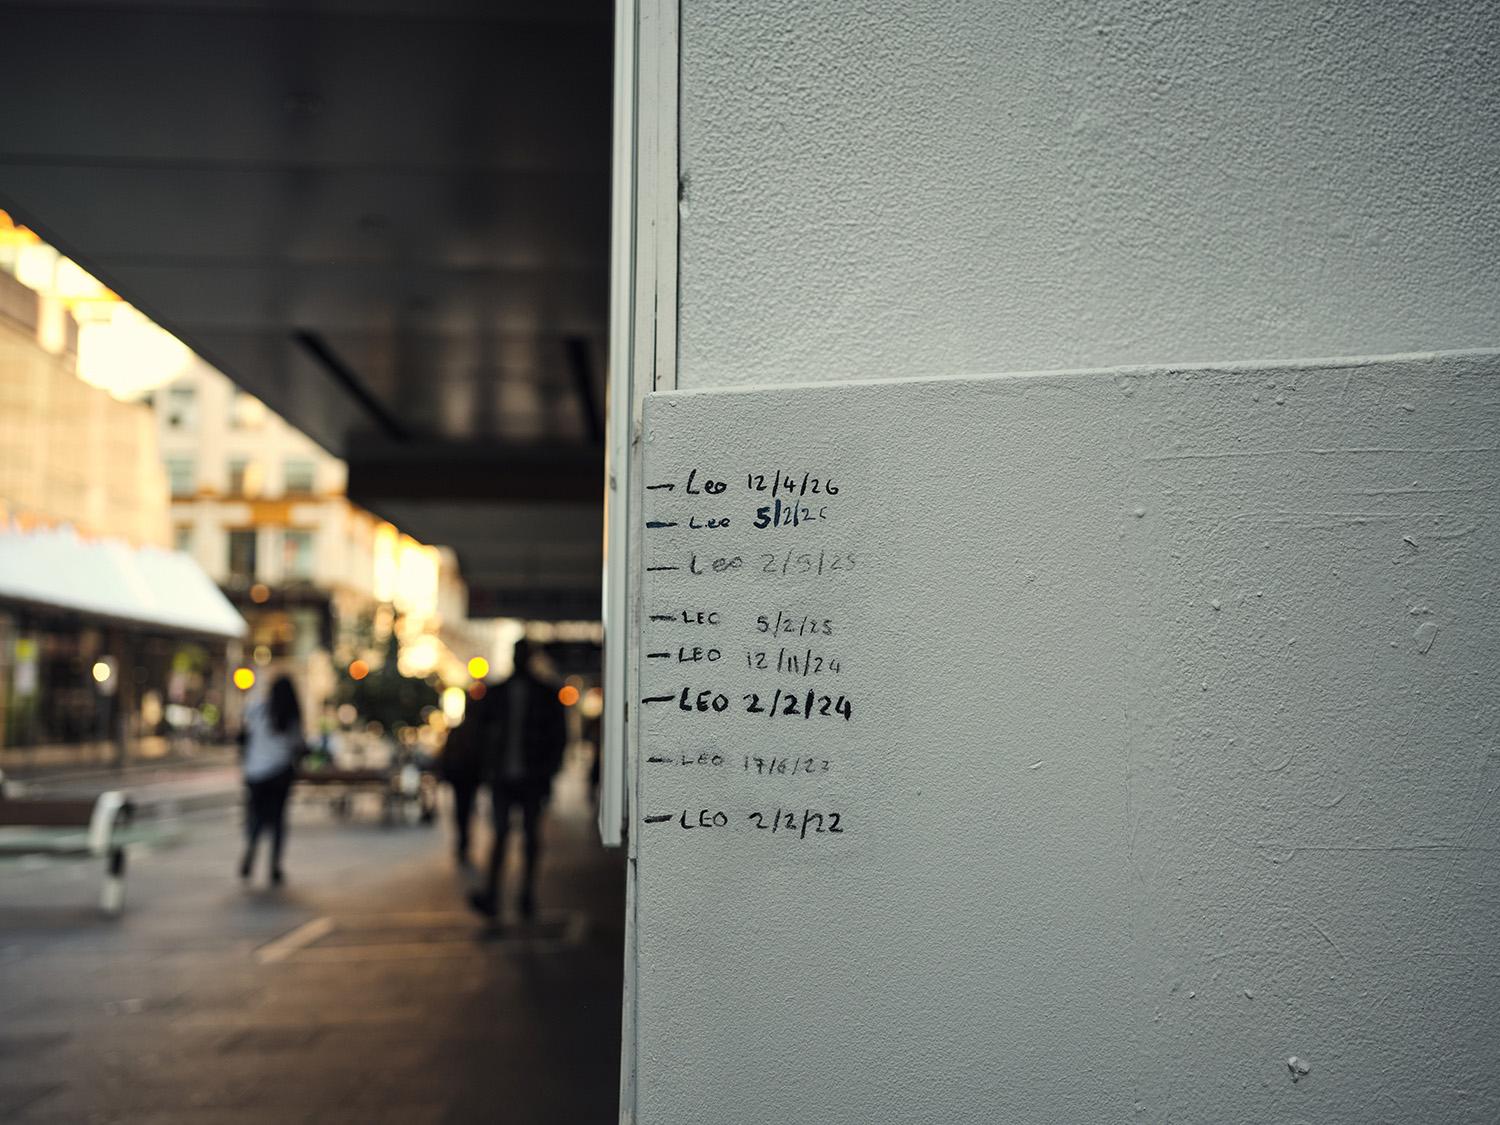 Leo 12/4/26
Leo 5/2/26
Leo 2/9/25
LEO 5/2/25
LEO 12/11/24
LEO 2/2/24
LEO 17/6/23
LEO 2/2/22